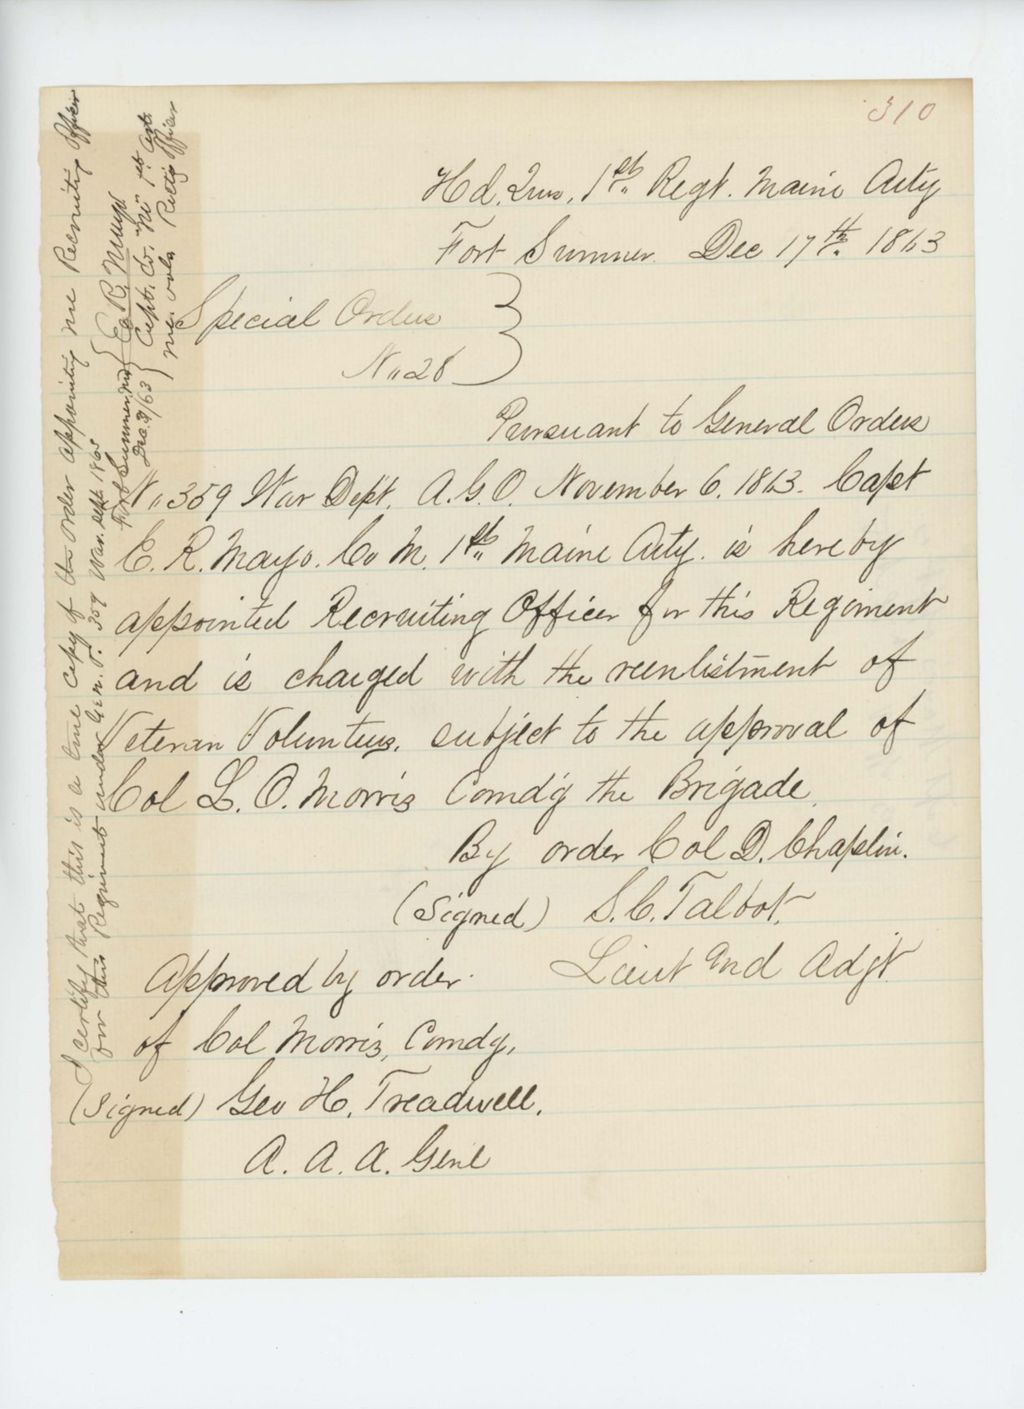 310
Hd. Qrs. 1st Regt. Maine Arty
Fort Sumner. Dec 17th. 1863
Special Orders
No 28
Pursuant to General Orders
No 359 War Dept. A.G.O. November 6. 1863. Capt
E. R. Mayo. Co M. 1st Maine Arty. is hereby
appointed Recruiting Officer for this Regiment
and is charged with the reenlistment of
Veteran Volunteers, subject to the approval of
Col L. O. Morris Comd'g the Brigade.
By order Col D. Chaplin.
(Signed) S. C. Talbot.
Lieut and Adjt
Approved by order
of Col Morris, Comdg,
(Signed) Geo H. Treadwell.
A. A. A. Genl
I certify that this is a true copy of the order appointing me Recruiting Officer
for this Regiment under Gen. O. 359 War. Dept. 1863
Fort Sumner, Md
Dec. 31/63
E. R. Mayo
Capt. Co. "M" 1st Arty.
Me. Vols Rectg Officer